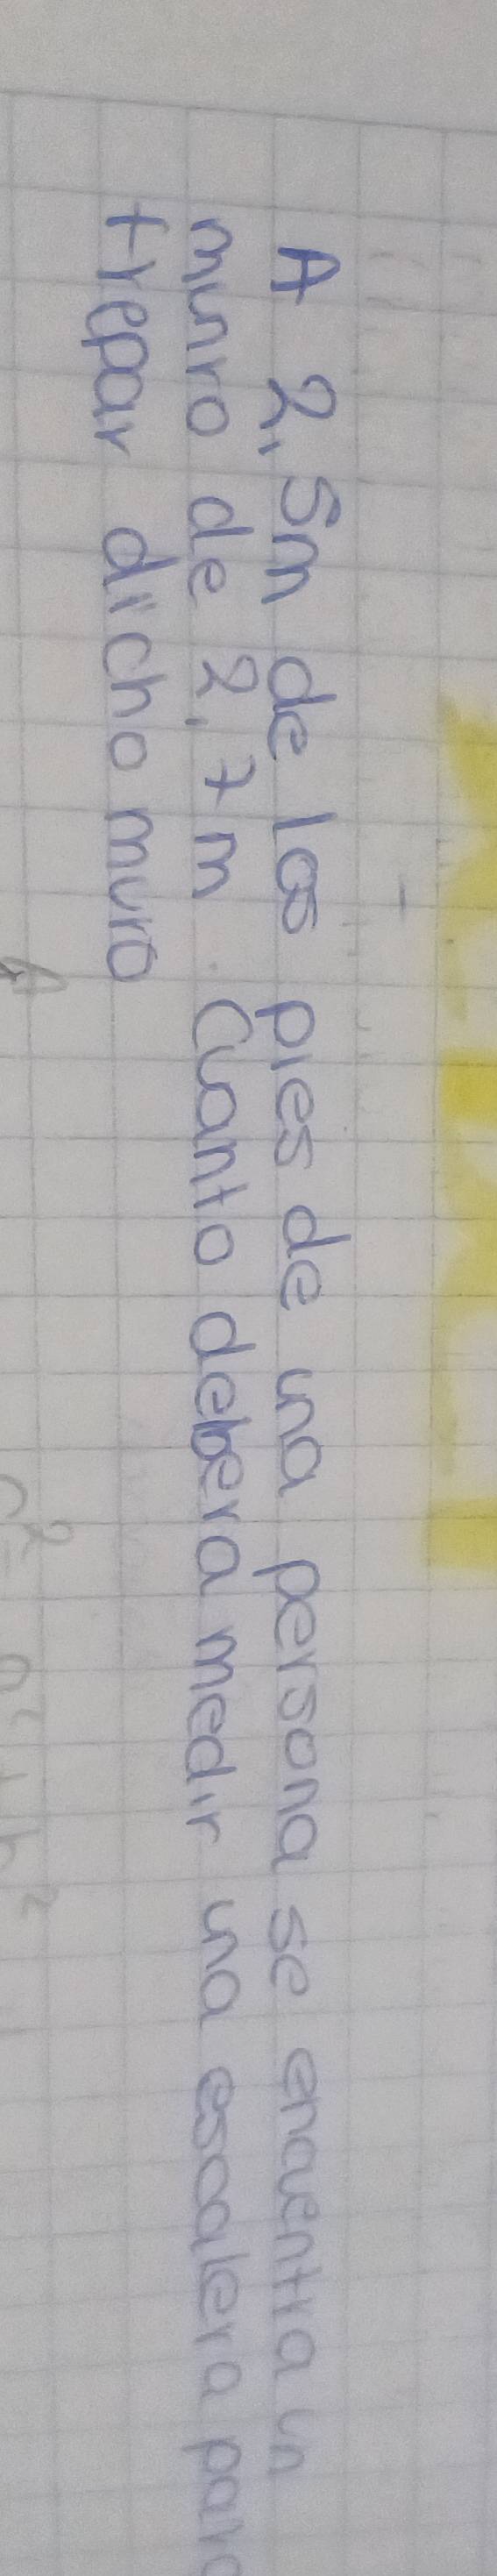 A 2,5m de los pies de una persona se encuentra un
muro de 2,7m Cuanto debera medir una escalera para
trepar dicho muro